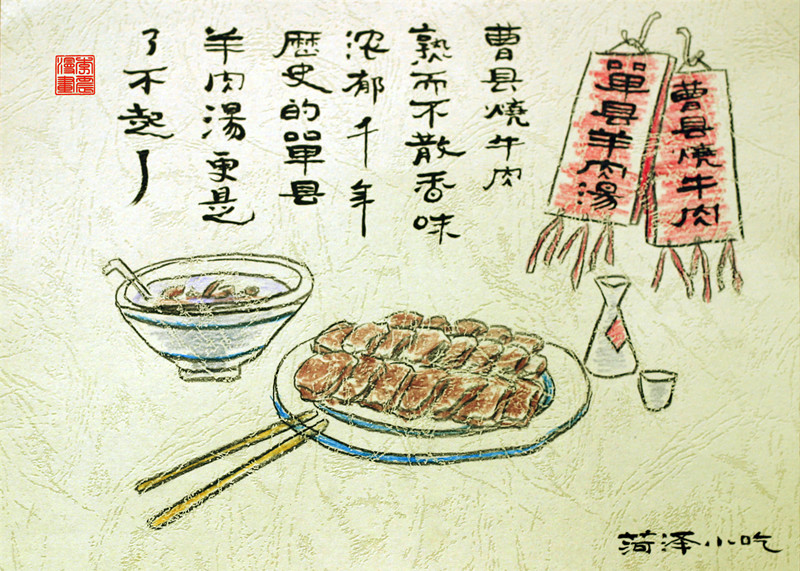 曹县燒牛肉
單县羊肉湯
曹县燒牛肉
熟而不散香味
浓郁千年
歷史的單县
羊肉湯更是
了不起！
漫畫
菏泽小吃